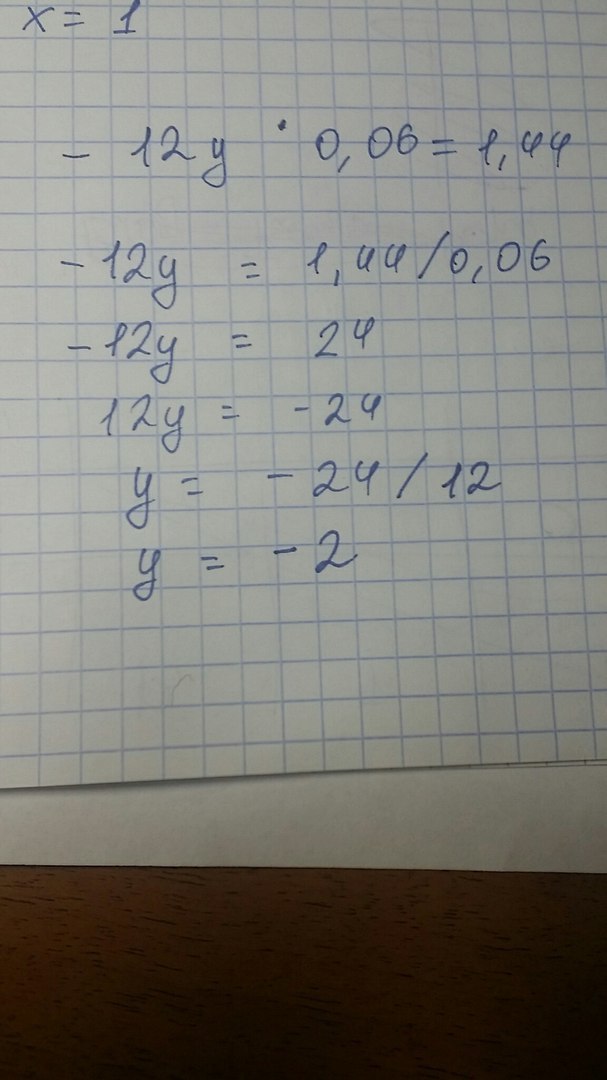 x = 1
- 12y · 0,06 = 1,44
-12y = 1,44/0,06
-12y = 24
12y = -24
y = -24/12
y = -2